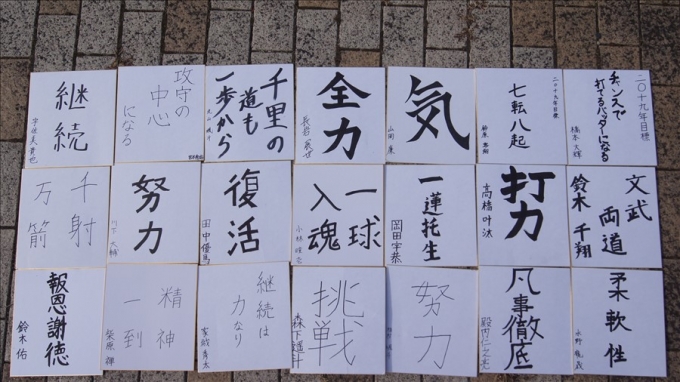 二〇十九年目標
チャンスで
打てるバッターになる
橋本 大輝
二〇十九年目標
七転八起
気
山田 康
全力
長岩
千里の
道も
一歩から
攻守の
中心
になる
継続
文武
両道
鈴木 千翔
打力
高橋 叶汰
一蓮托生
岡田 宇恭
一球
入魂
小林
復活
田中 優馬
努力
川下 大輔
千射
万箭
柔軟性
水野
凡事徹底
殿内 仁之允
努力
挑戦
森下
継続は
力なり
精神
一到
柴原 御
報恩謝徳
鈴木 佑